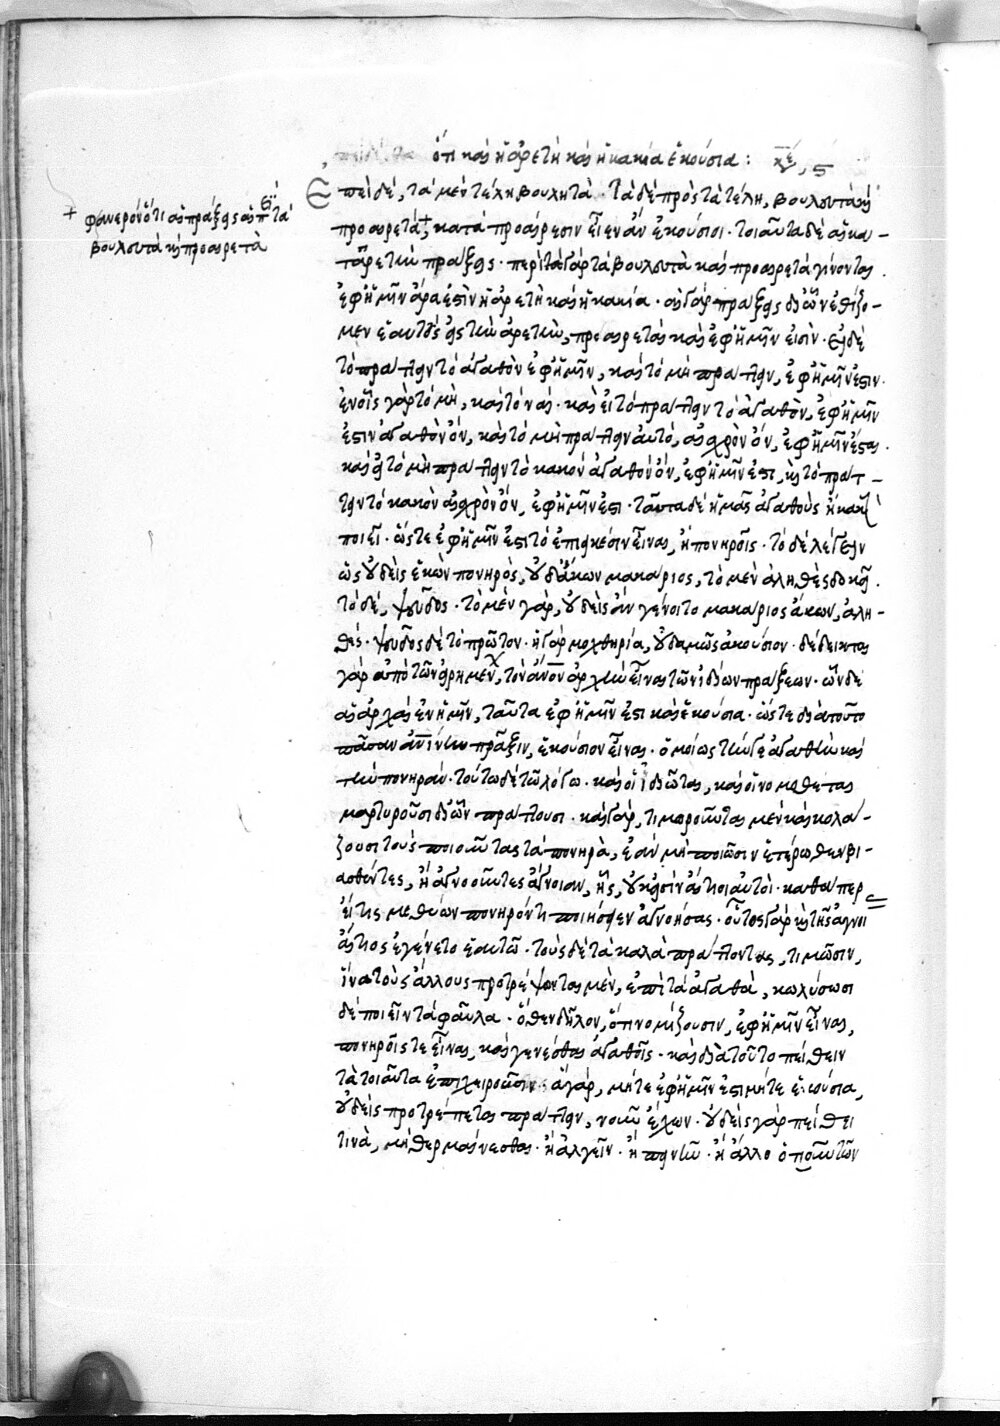 ὅτι καὶ ἡ ἀρετὴ καὶ ἡ κακία ἑκούσια :
Ἐπειδὲ, τὰ μὲν τέλη βουλητὰ· τὰ δὲ πρὸς τὰ τέλη, βουλευτὰ καὶ
προαιρετὰ, κατὰ προαίρεσιν εἶεν ἂν ἑκούσιοι· τοιαῦται δὲ αἱ κα-
τ᾽ἀρετὴν πράξεις· περὶ τὰ γὰρ τὰ βουλευτὰ καὶ προαιρετὰ γίνονται.
ἐφ᾽ἡμῖν ἄρα ἐστὶν ἡ ἀρετὴ καὶ ἡ κακία· αἱ γὰρ πράξεις δι᾽ὧν ἐθίζο-
μεν ἑαυτοὺς εἰς τὴν ἀρετὴν, προαιρεταὶ καὶ ἐφ᾽ἡμῖν εἰσὶν· εἰ δὲ
τὸ πράττειν τὸ ἀγαθὸν ἐφ᾽ἡμῖν, καὶ τὸ μὴ πράττειν, ἐφ᾽ἡμῖν ἐστιν·
ἐν οἷς γὰρ τὸ μὴ, καὶ τὸ ναί· καὶ εἰ τὸ πράττειν τὸ ἀγαθὸν, ἐφ᾽ἡμῖν
ἐστιν ἀγαθὸν ὂν, καὶ τὸ μὴ πράττειν αὐτὸ, αἰσχρὸν ὂν, ἐφ᾽ἡμῖν ἔσται.
καὶ εἰ τὸ μὴ πράττειν τὸ κακὸν ἀγαθὸν ὂν, ἐφ᾽ἡμῖν ἐστι, καὶ τὸ πράτ-
τειν τὸ κακὸν αἰσχρὸν ὂν, ἐφ᾽ἡμῖν ἐστι· ταῦτα δὲ ἡμᾶς ἀγαθοὺς ἢ κακοὺς
ποιεῖ· ὥστε ἐφ᾽ἡμῖν ἐστι τὸ ἐπιεικέσιν εἶναι, ἢ πονηροῖς· τὸ δὲ λέγειν
ὡς οὐδεὶς ἑκὼν πονηρὸς, οὐδ᾽ἄκων μακάριος, τὸ μὲν ἀληθὲς δοκεῖ.
τὸ δέ, ψεῦδος· τὸ μὲν γὰρ, οὐδεὶς ἂν γένοιτο μακάριος ἄκων, ἀλη-
θές· ψεῦδος δὲ τὸ πρῶτον· ἡ γὰρ μοχθηρία, οὐδαμῶς ἀκούσιον· δέδεικται
γὰρ ἀπὸ τῶν εἰρημένων, τὸν ἄνον ἀρχὴν εἶναι τῶν ἰδίων πράξεων· ὧν δὲ
αἱ ἀρχαὶ ἐν ἡμῖν, ταῦτα ἐφ᾽ἡμῖν ἐστι καὶ ἑκούσια· ὥστε διὰ τοῦτο
πᾶσαν ἀνίνην πρᾶξιν, ἑκούσιον εἶναι· ὁμοίως τήν τε ἀγαθὴν καὶ
τὴν πονηράν· τούτω δὲ τῶ λόγω· καὶ οἱ ἰδιῶται, καὶ οἱ νομοθέται
μαρτυροῦσι δι᾽ὧν πράττουσι· καὶ γὰρ, τιμωροῦνται μὲν καὶ κολά-
ζουσι τοὺς ποιοῦντας τὰ πονηρὰ, ἐὰν μὴ ποιῶσιν ἑτέρωθεν βι-
ασθέντες, ἢ ἀγνοοῦντες ἄγνοιαν, ἧς, οὐκ εἰσὶν αἴτιοι αὐτοί· καθάπερ
εἴ τις μεθύων πονηρόν τι ποιήσειεν ἀγνοήσας· οὗτος γὰρ καὶ τῆς ἀγνοί
αἴτιος ἐγένετο ἑαυτῶ· τοὺς δὲ τὰ καλὰ πράττοντας, τιμῶσιν,
ἵνα τοὺς ἄλλους προτρέψωνται μὲν, ἐπὶ τὰ ἀγαθὰ, κωλύσωσι
δὲ ποιεῖν τὰ φαῦλα· ὅθεν δῆλον, ὅτι νομίζουσιν, ἐφ᾽ἡμῖν εἶναι,
πονηροῖς τε εἶναι, καὶ γενέσθαι ἀγαθοῖς· καὶ διὰ τοῦτο πείθειν
τὰ τοιαῦτα ἐπιχειροῦσιν· ἃ γὰρ, μήτε ἐφ᾽ἡμῖν ἐστι μήτε ἑκούσια,
οὐδεὶς προτρέπεται πράττειν, νοῦν ἔχων· οὐδεὶς γὰρ πείθει
τινὰ, μὴ θερμαίνεσθαι· ἢ ἀλγεῖν· ἢ πεινῆν· ἢ ἄλλο ὁποιοῦν τῶν
+ φανερὸν ὅτι αἱ πράξεις αἱ περὶ τὰ
βουλευτὰ καὶ προαιρετὰ